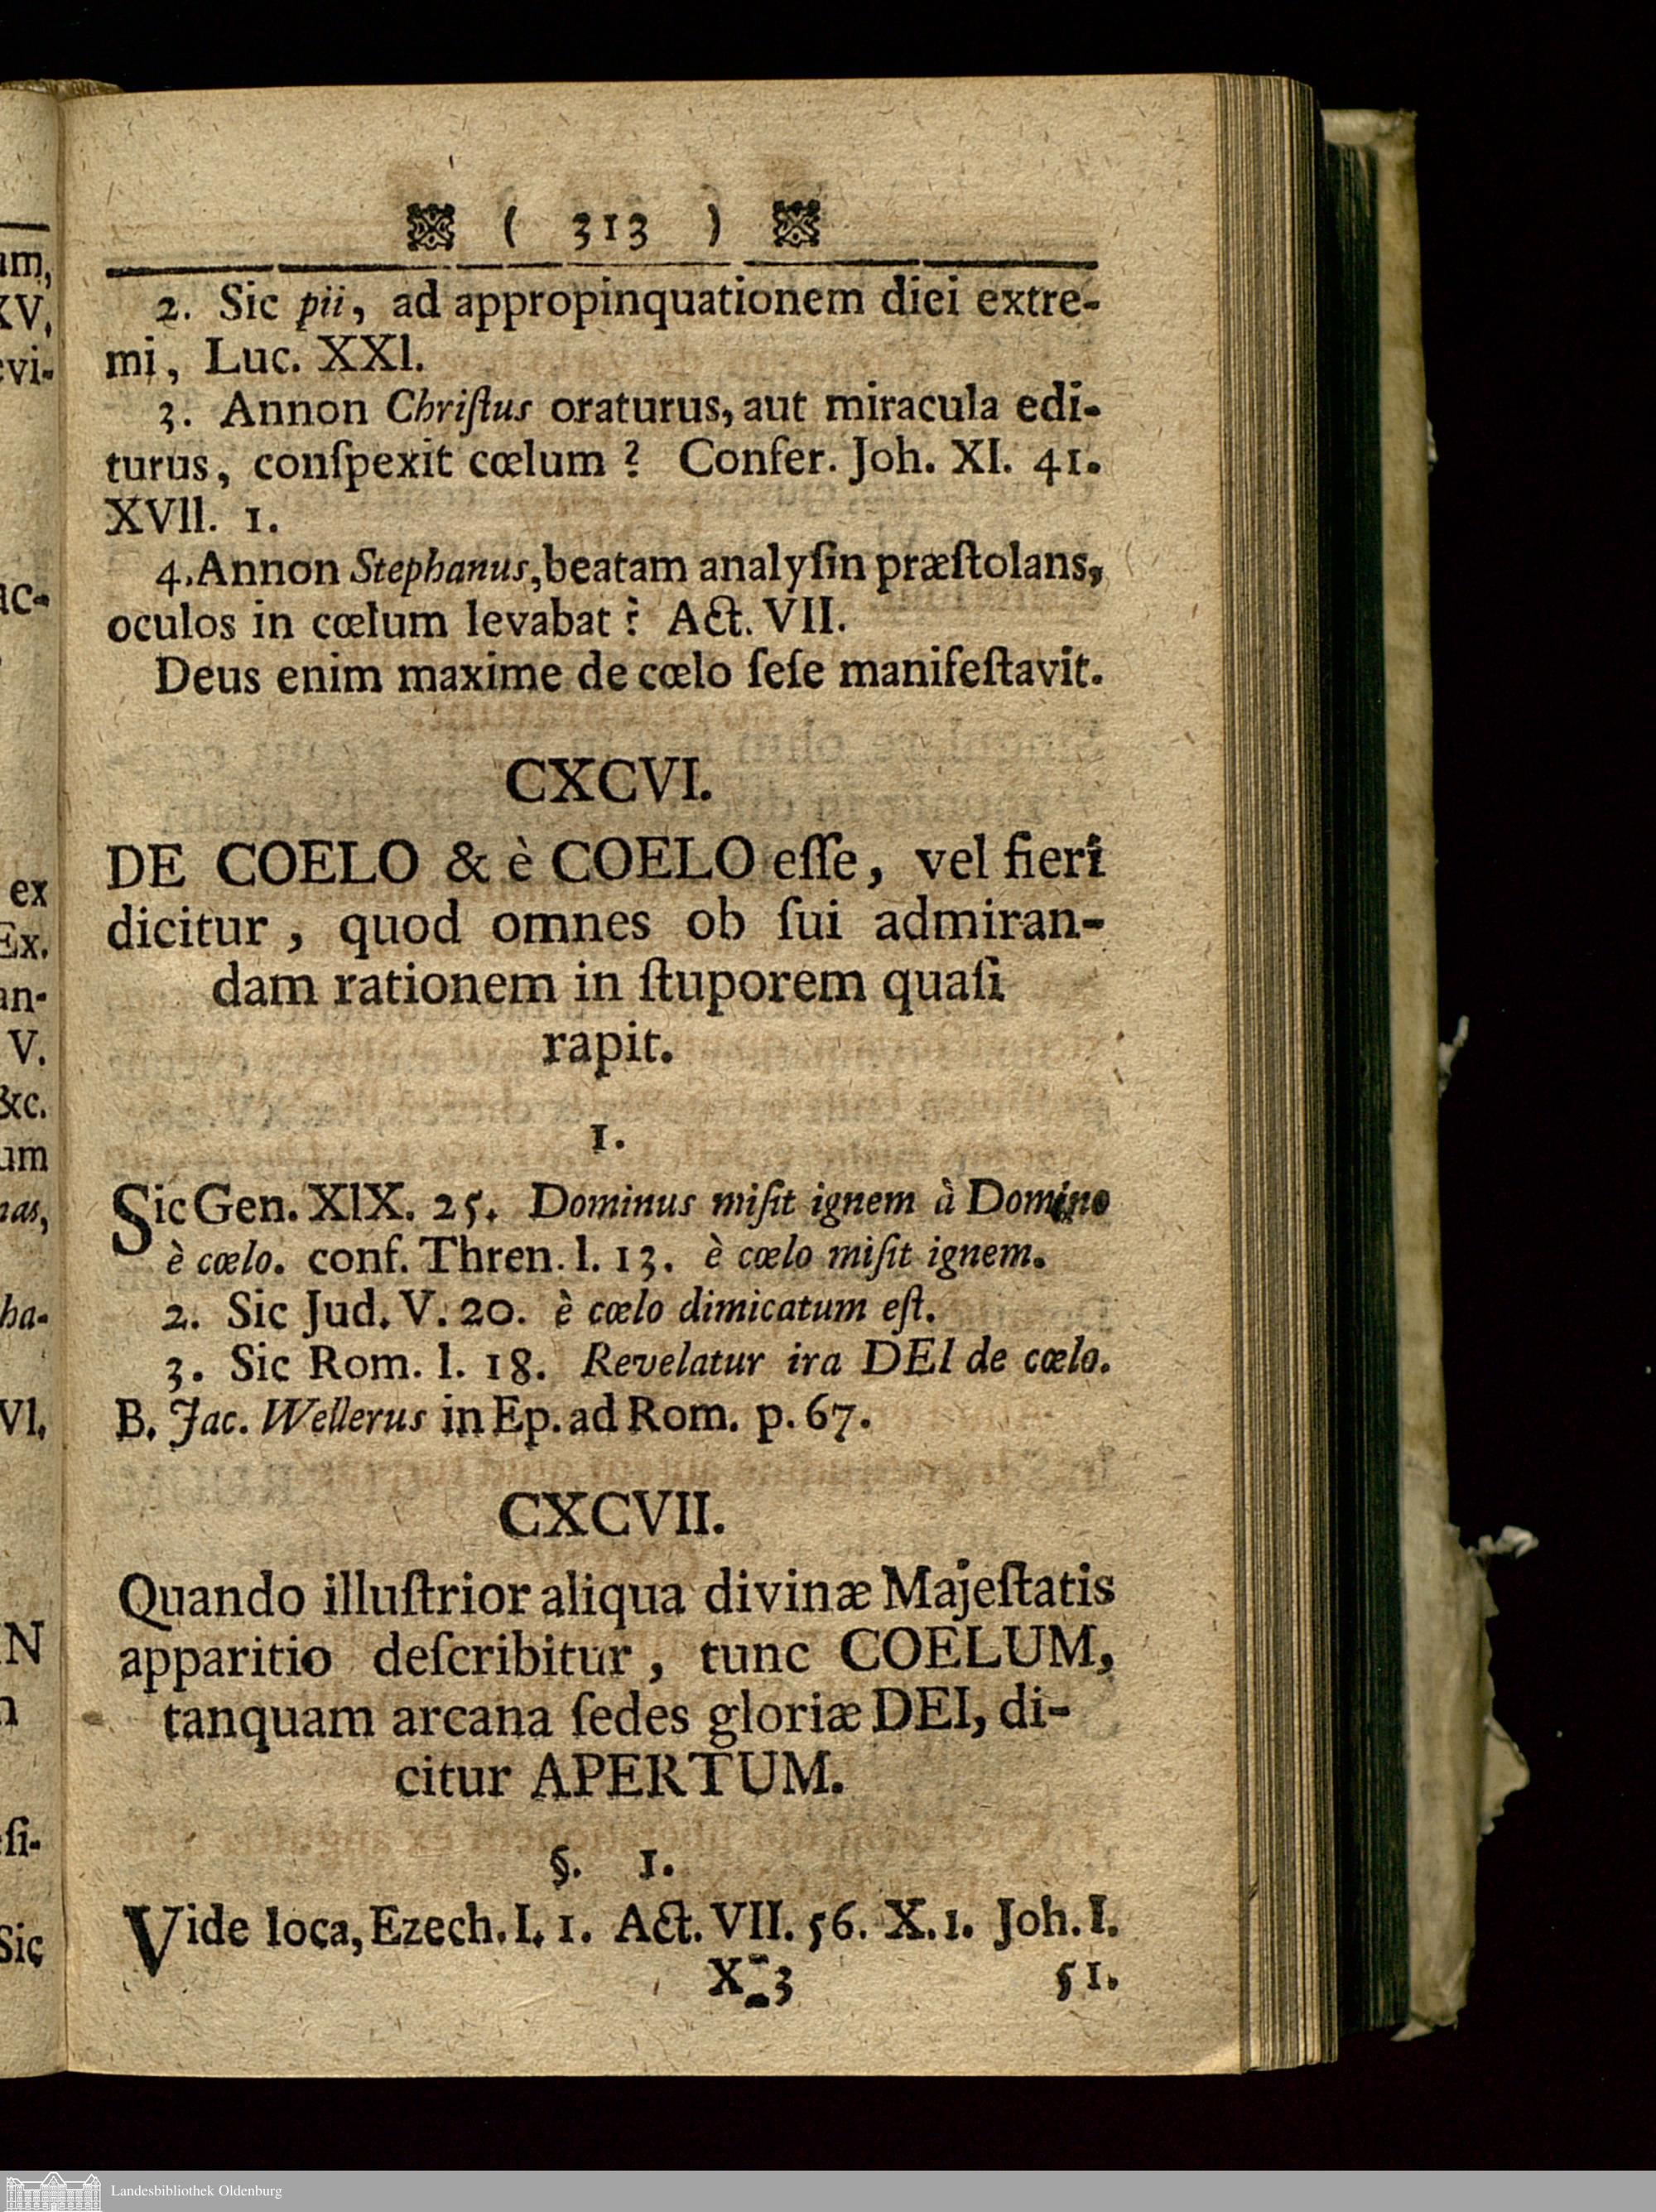 ( 313 )
2. Sic pii, ad appropinquationem diei extre-
mi, Luc. XXl.
3. Annon Chriſtus oraturus, aut miracula edi-
turus, conſpexit cœlum? Confer. Joh. XI. 41.
XVll. 1.
4. Annon Stephanus, beatam analyſin præſtolans,
oculos in cœlum levabat? Act. VII.
Deus enim maxime de cœlo ſeſe manifeſtavit.
CXCVI.
DE COELO & è COELO eſſe, vel fieri
dicitur, quod omnes ob ſui admiran-
dam rationem in ſtuporem quaſi
rapit.
1.
Sic Gen. XlX. 25. Dominus miſit ignem à Domino
è cœlo. conf. Thren. l. 13. è cœlo miſit ignem.
2. Sic Jud. V. 20. è cœlo dimicatum eſt.
3. Sic Rom. l. 18. Revelatur ira DEl de cœlo.
B. Jac. Wellerus in Ep. ad Rom. p. 67.
CXCVII.
Quando illuſtrior aliqua divinæ Majeſtatis
apparitio deſcribitur, tunc COELUM,
tanquam arcana ſedes gloriæ DEI, di-
citur APERTUM.
§. 1.
Vide loca, Ezech. I. 1. Act. VII. 56. X. 1. Joh. I.
X 3 51.
Landesbibliothek Oldenburg